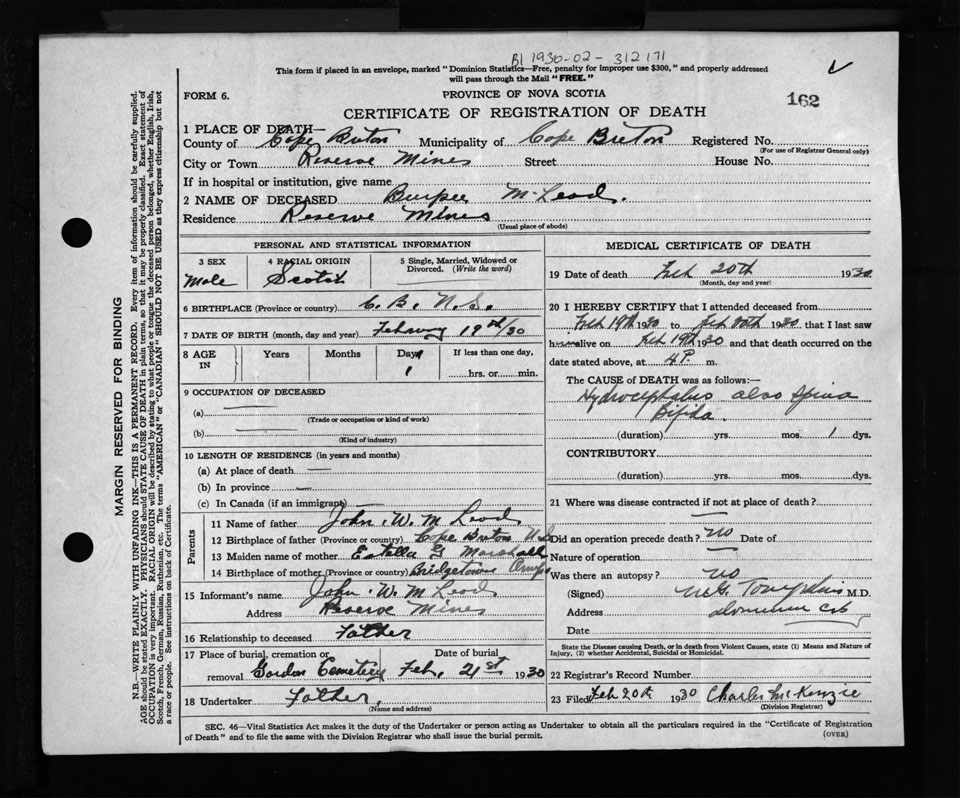 B1 1930-02-312171
This form if placed in an envelope, marked "Dominion Statistics—Free, penalty for improper use $300," and properly addressed
will pass through the Mail "FREE."
FORM 6.
PROVINCE OF NOVA SCOTIA
162
CERTIFICATE OF REGISTRATION OF DEATH
1 PLACE OF DEATH—
County of Cape Breton Municipality of Cape Breton Registered No.
(For use of Registrar General only)
City or Town Reserve Mines Street House No.
If in hospital or institution, give name
2 NAME OF DECEASED Burpee McLeod.
Residence Reserve Mines
(Usual place of abode)
PERSONAL AND STATISTICAL INFORMATION
3 SEX
Male
4 RACIAL ORIGIN
Scotch
5 Single, Married, Widowed or
Divorced. (Write the word)
6 BIRTHPLACE (Province or country) C. B. N. S.
7 DATE OF BIRTH (month, day and year) 19th/30
8 AGE
IN
Years Months Days
1
If less than one day,
hrs. or min.
9 OCCUPATION OF DECEASED
(a)
(Trade or occupation or kind of work)
(b)
(Kind of industry)
10 LENGTH OF RESIDENCE (in years and months)
(a) At place of death —
(b) In province —
(c) In Canada (if an immigrant) —
Parents
11 Name of father John W. McLeod
12 Birthplace of father (Province or country) Cape Breton N.S.
13 Maiden name of mother Estella G Marshall
14 Birthplace of mother (Province or country) Bridgetown
15 Informant's name John W. McLeod
Address Reserve Mines
16 Relationship to deceased Father
17 Place of burial, cremation or removal Gordon Cemetery
Date of burial Feb. 21st 1930
18 Undertaker Father,
(Name and address)
MEDICAL CERTIFICATE OF DEATH
19 Date of death Feb 20th 1930
(Month, day and year)
20 I HEREBY CERTIFY that I attended deceased from
Feb 19th 1930 to Feb 20th 1930 that I last saw
him alive on Feb 19th 1930 and that death occurred on the
date stated above, at 4 P. m.
The CAUSE of DEATH was as follows:—
Hydrocephalus also Spina
Bifida.
(duration) yrs. mos. 1 dys.
CONTRIBUTORY
(duration) yrs. mos. dys.
21 Where was disease contracted if not at place of death?
Did an operation precede death? No Date of
Nature of operation —
Was there an autopsy? No
(Signed) Tompkins M.D.
Address Dominion C.B.
Date
State the Disease causing Death, or in death from Violent Causes, state (1) Means and Nature of
Injury, (2) whether Accidental, Suicidal or Homicidal.
22 Registrar's Record Number
23 Filed Feb 20th 1930 Charles McKenzie
(Division Registrar)
SEC. 46—Vital Statistics Act makes it the duty of the Undertaker or person acting as Undertaker to obtain all the particulars required in the "Certificate of Registration
of Death" and to file the same with the Division Registrar who shall issue the burial permit.
(OVER)
MARGIN RESERVED FOR BINDING
N.B.—WRITE PLAINLY WITH UNFADING INK—THIS IS A PERMANENT RECORD. Every item of information should be carefully supplied.
AGE should be stated EXACTLY. PHYSICIANS should STATE CAUSE OF DEATH in plain terms, so that it may be properly classified. Exact statement of
OCCUPATION is very important. RACIAL ORIGIN will be described by stating to what people or tongue the deceased person belonged, whether English, Irish,
Scotch, French, German, Russian, Ruthenian, etc. The terms "AMERICAN" or "CANADIAN" SHOULD NOT BE USED as they express citizenship but not
a race or people. See instructions on back of Certificate.